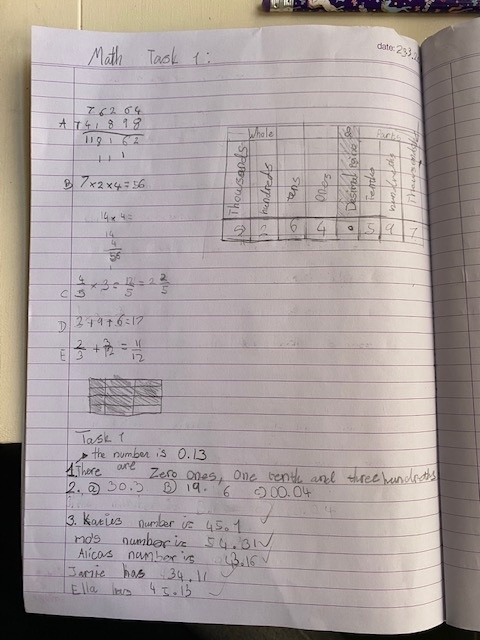 Math Task 1:
date: 23.3.2
7 6 2 6 4
A + 4 1 8 9 8
1 1 8 1 6 2
1 1 1
Whole Parts
Thousands hundreds tens ones Decimal Tenths hundredths Thousandths
2 6 4 . 5 9 7
B 7×2×4=56
14×4=
14
4
56
C 4/5 × 3 = 12/5 = 2 2/5
D 2+9+6=17
E 2/3 + 3/12 = 11/12
Task 1
the number is 0.13
1. There are Zero ones, One tenth and three hundreths
2. a) 30.3 B) 19.6 c) 00.04
3. Katies number is 45.1
mo's number is 54.31
Alicas number is 43.16
Jamie has 34.11
Ella has 45.13